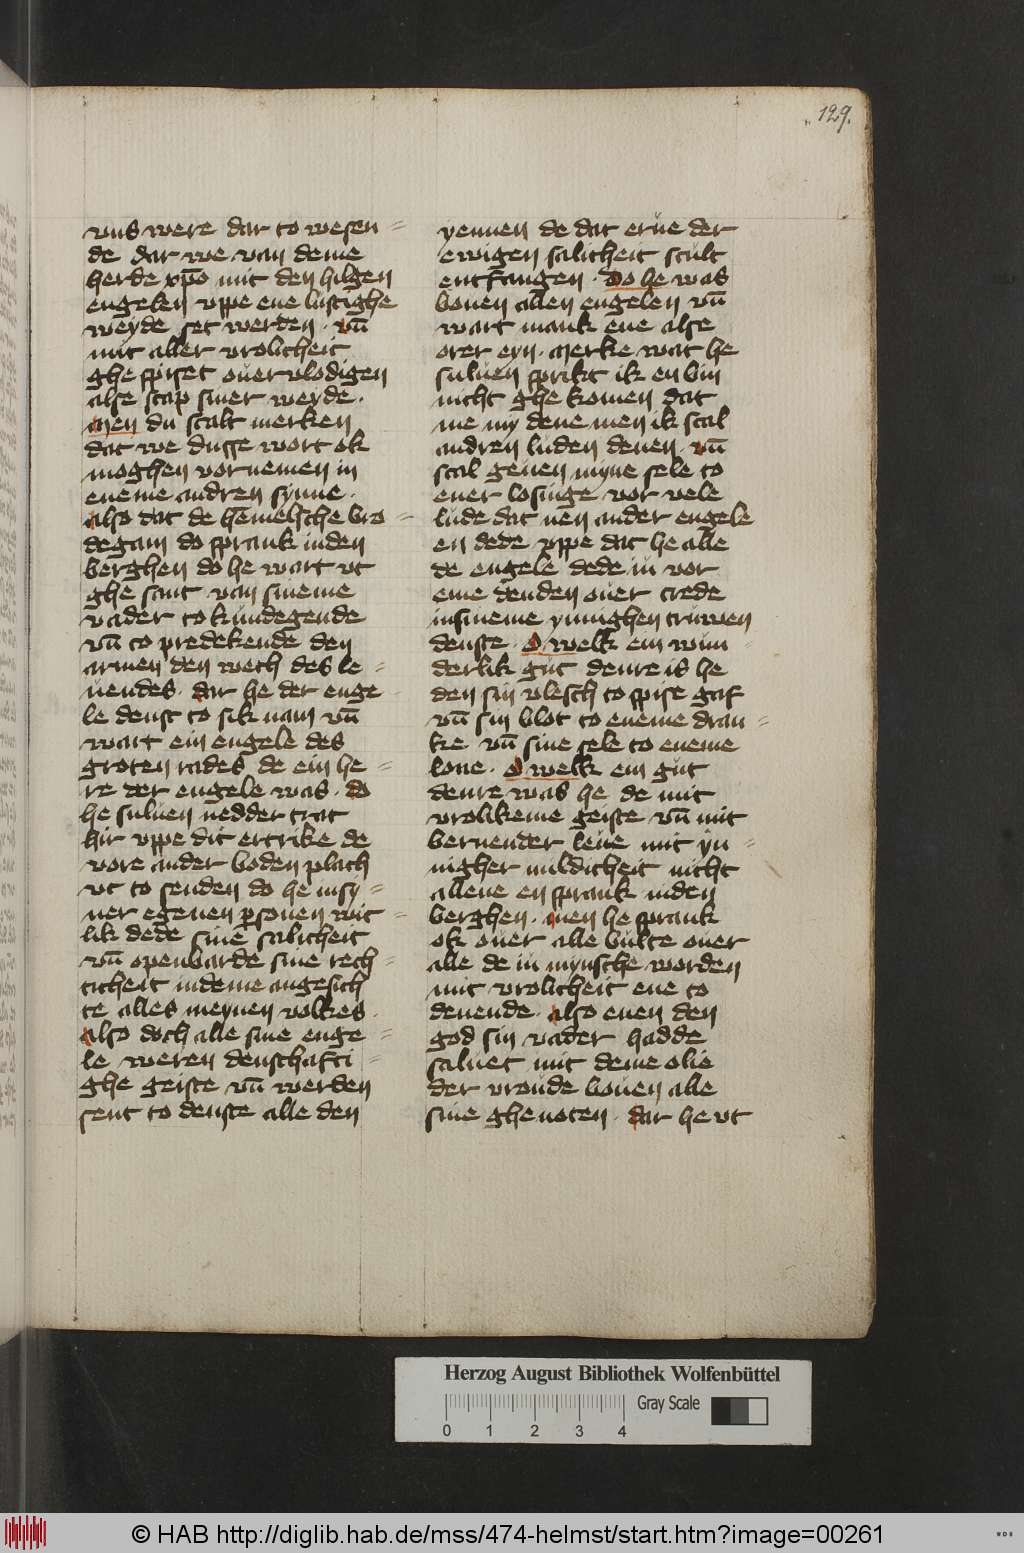 129.
vns were dar to wesen=
de dar we van deme
herde xp̄o mit den hilgen
engelen vppe ene lustighe
weyde set werden · vn̄
mit aller vrolicheit
ghe spiset ouer vlodigen
alse scap siner weyde ·
Men du scalt merken
dat we dusse wort ok
moghen vornemen in
eneme andren synne ·
Also dat de hēmelsche bro=
degam do sprank in den
berghen do he wart vt
ghe sant van sineme
vader to kundegende
vn̄ to predekende den
armen den wech des le=
uendes · dar he der enge
le denst to sik nam vn̄
wart ein engele des
groten rades de ein he=
re der engele was · do
he suluen nedder trat
hir vppe dit ertrike de
vore ander boden plach
vt to senden do he in sy=
ner egenen psonen wit=
lik dede sine salicheit
vn̄ openbarde sine rech=
ticheit in deme angesich
te alles meynen volkes ·
Also doch alle sine enge=
le weren denschafti=
ghe geiste vn̄ werden
sent to denste alle den
yennen de dat erue der
ewigen salicheit scult
entfangen · Do he was
bouen allen engelen vn̄
wart mank ene alse
orer eyn · Merke wat he
suluen sprikt ik en bin
nicht ghe komen dat
me my dene men ik scal
andren luden denen · vn̄
scal geuen myne sele to
ener losinge vor vele
lude dat nen ander engele
en dede vppe dat he alle
de engele dede in vor
eme denden ouer trede
in sineme ynnighen truwen
denste · O welk ein wun=
derlik gut denre is he
den sin vlesch to spise gaf
vn̄ sin blot to eneme dran=
ke vn̄ sine sele to eneme
lone · O welk ein gut
denre was he de mit
vrolikeme geiste vn̄ mit
bernender leue mit yn=
nigher mildicheit nicht
allene en sprank in den
berghen · Men he sprank
ok ouer alle bulte ouer
alle de in mynsche worden
mit vrolicheit ene to
denende · Also enen den
god sin vader hadde
saluet mit deme olie
der vroude bouen alle
sine ghenoten · dar he vt
Herzog August Bibliothek Wolfenbüttel
Gray Scale
0 1 2 3 4
© HAB http://diglib.hab.de/mss/474-helmst/start.htm?image=00261
WDB